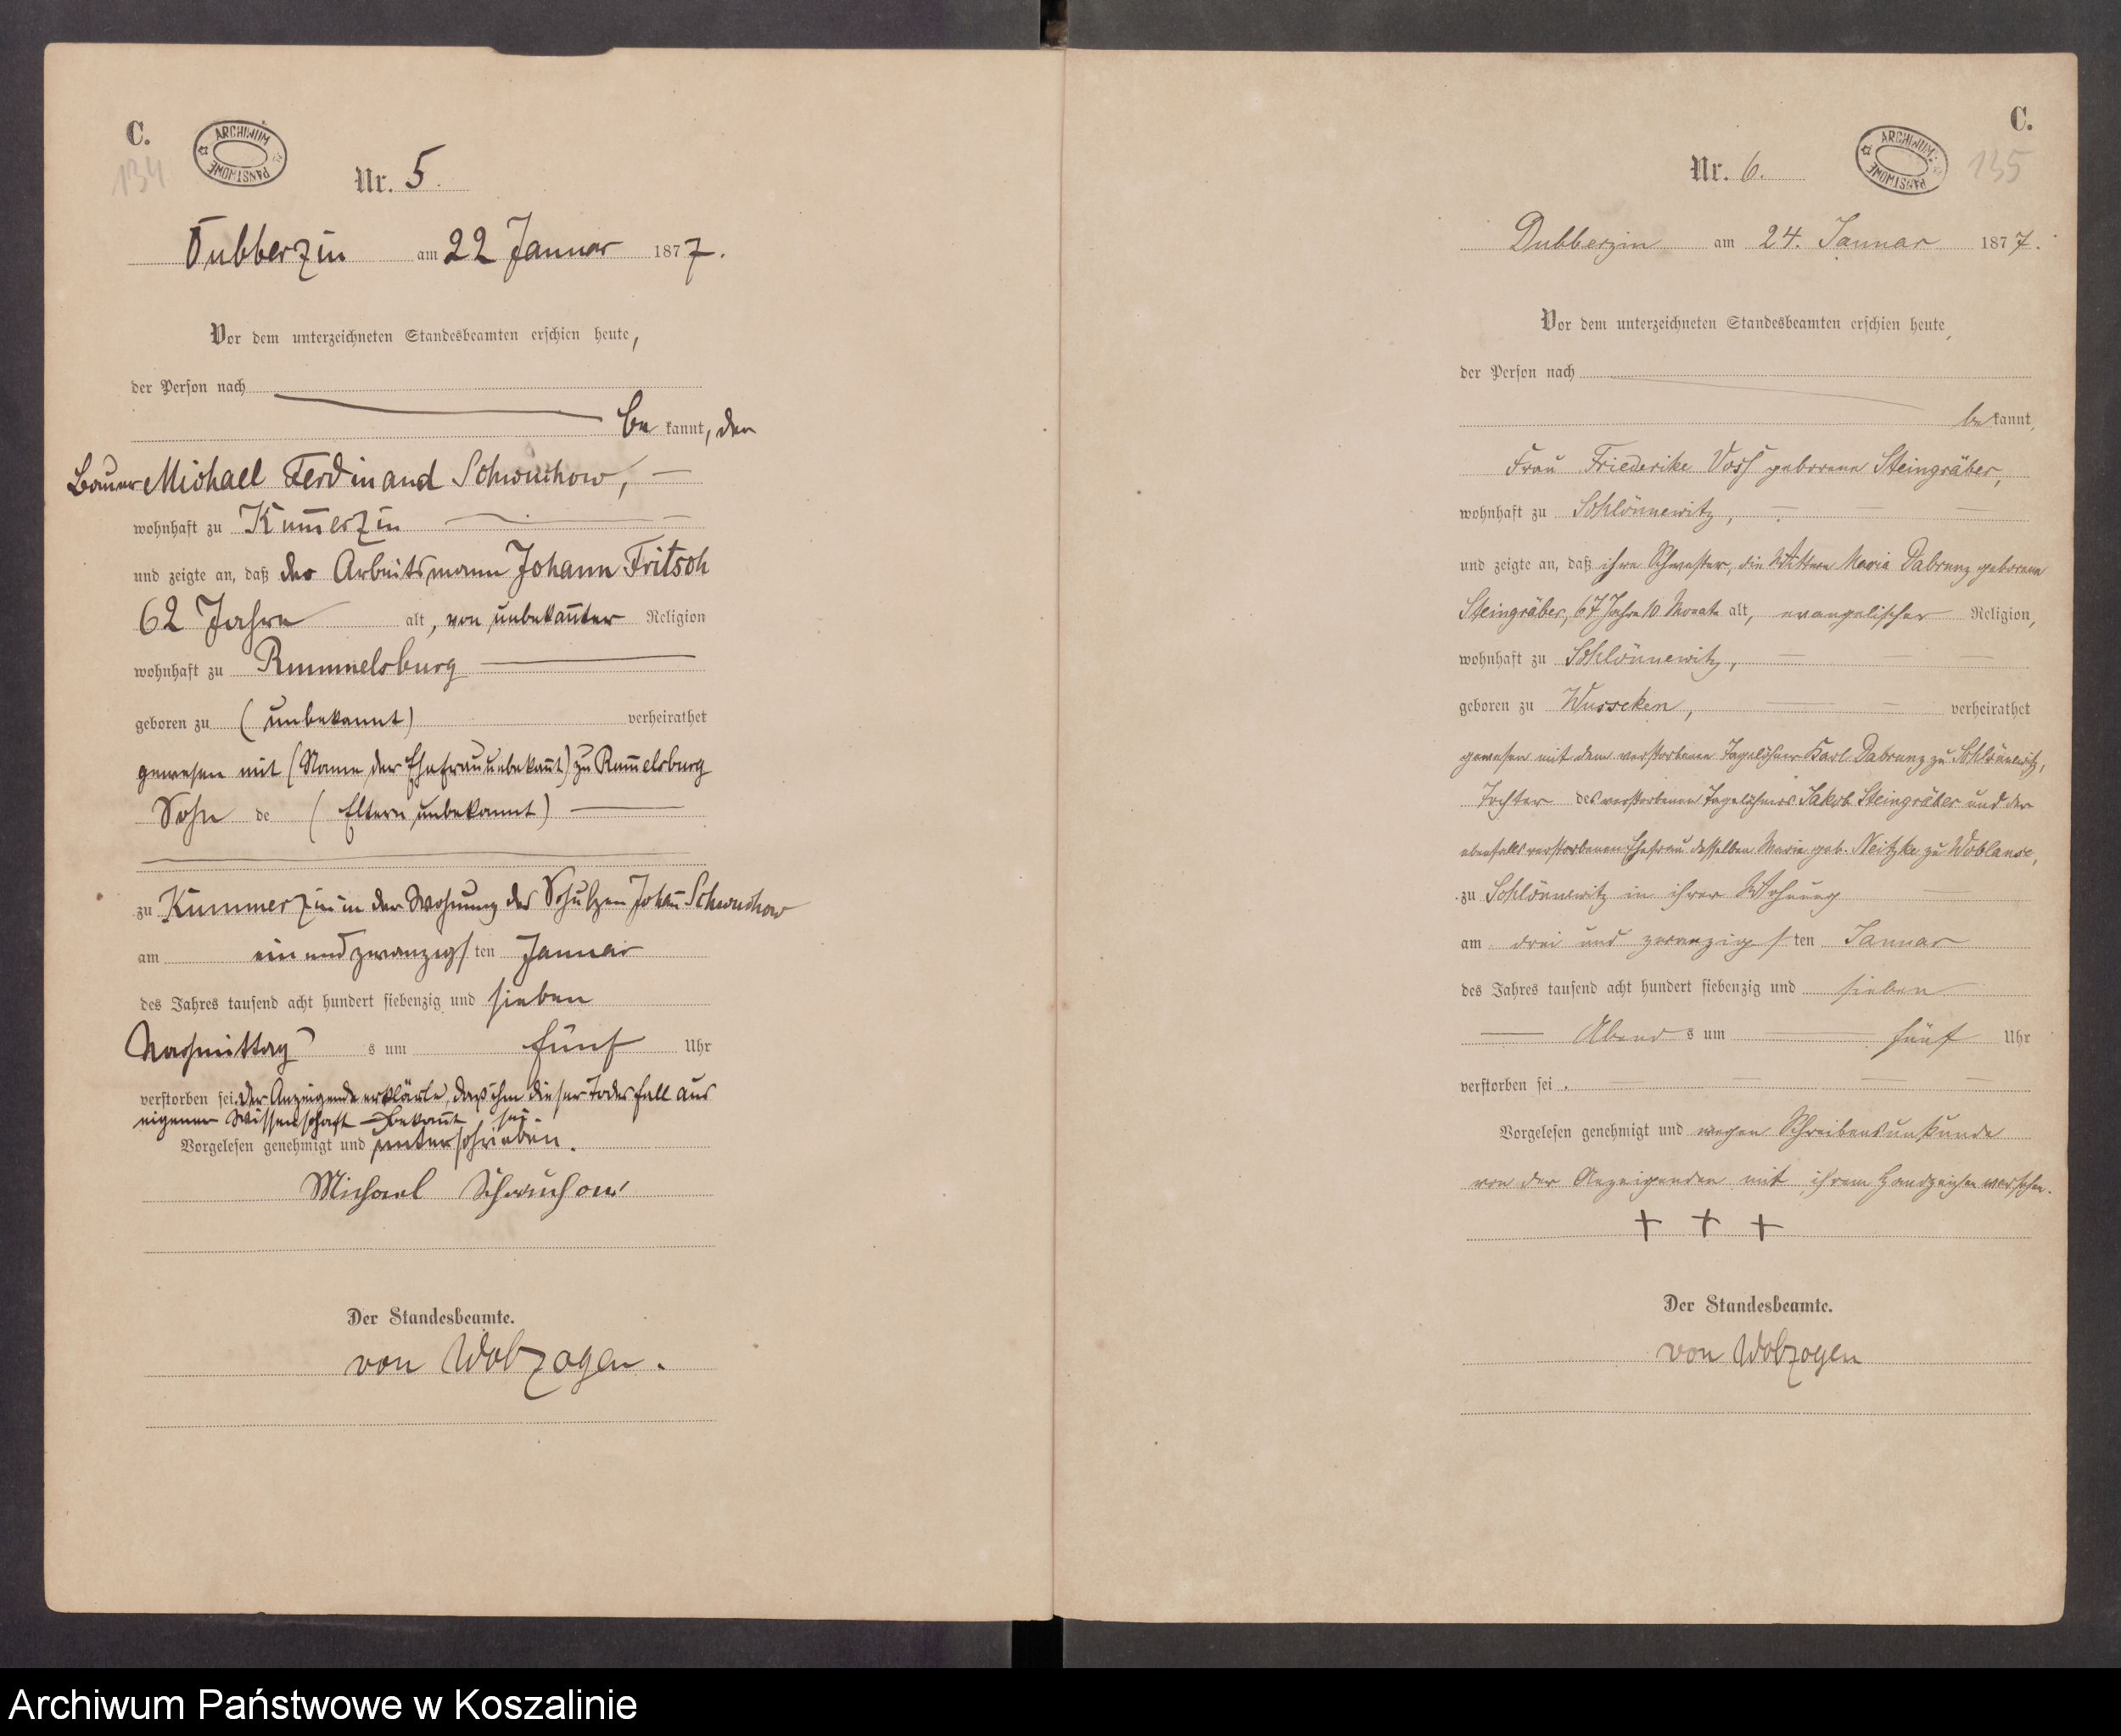 C.
134
ARCHIWUM PAŃSTWOWE
Nr. 5.
Dubberzin am 22 Januar 1877.
Vor dem unterzeichneten Standesbeamten erschien heute,
der Person nach
be kannt, der
Bauer Michael Ferdinand Schwuchow,
wohnhaft zu Kum̄erzin
und zeigte an, daß der Arbeitsmann Johann Fritsch
62 Jahre alt, von unbekan̄ter Religion
wohnhaft zu Rummelsburg
geboren zu (unbekannt) verheirathet
gewesen mit (Name der Ehefrau unbekan̄t) zu Rum̄elsburg
Sohn de (Eltern unbekannt)
zu Kummerzin in der Wohnung des Schulzen Johan̄ Schwuchow
am ein und zwanzigsten Januar
des Jahres tausend acht hundert siebenzig und sieben
Nachmittags um fünf Uhr
verstorben sei. Der Anzeigende erklärte, daß ihm dieser Todesfall aus
eigener Wissenschaft bekan̄t sei.
Vorgelesen genehmigt und unterschrieben.
Michael Schwuchow
Der Standesbeamte.
von Wolzogen.
C.
ARCHIWUM PAŃSTWOWE
135
Nr. 6.
Dubberzin am 24. Januar 1877.
Vor dem unterzeichneten Standesbeamten erschien heute,
der Person nach
be kannt,
Frau Friederike Voss geborene Steingräber,
wohnhaft zu Schlönnewitz,
und zeigte an, daß ihre Schwester, die Wittwe Maria Dabrunz geborene
Steingräber, 67 Jahre 10 Monate alt, evangelischer Religion,
wohnhaft zu Schlönnewitz,
geboren zu Wusseken, verheirathet
gewesen mit dem verstorbenen Tagelöhner Karl Dabrunz zu Schlönnewitz,
Tochter des verstorbenen Tagelöhners Jakob Steingräber und der
ebenfalls verstorbenen Ehefrau desselben Marie geb. Neitzke zu Woblanse,
zu Schlönnewitz in ihrer Wohnung
am drei und zwanzigsten Januar
des Jahres tausend acht hundert siebenzig und sieben
Abends um fünf Uhr
verstorben sei.
Vorgelesen genehmigt und wegen Schreibensunkunde
von der Anzeigenden mit ihrem Handzeichen versehen.
+ + +
Der Standesbeamte.
von Wolzogen
Archiwum Państwowe w Koszalinie